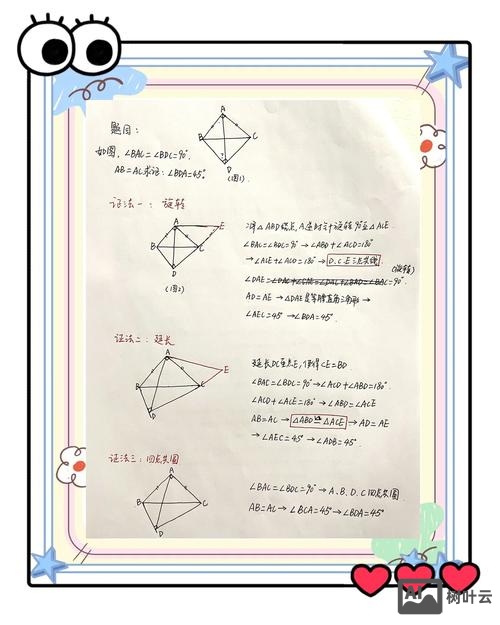 题目:
如图,∠BAC=∠BDC=90°,
AB=AC求证:∠BDA=45°
A
B
C
D
(图1)
证法一:旋转
A
E
B
C
D
(图2)
将△ABD绕点A逆时针旋转90°至△ACE
∠BAC=∠BDC=90°→∠ABD+∠ACD=180°
→∠ACE+∠ACD=180°→D.C.E三点共线.
(旋转)
∠DAE=∠DAC+∠CAE=∠DAC+∠BAD=∠BAC=90°
AD=AE→△DAE是等腰直角三角形→
∠AEC=45°→∠BDA=45°.
证法二:延长
A
E
B
C
D
延长DC至点E,使得CE=BD.
∠BAC=∠BDC=90°→∠ACD+∠ABD=180°.
∠ACD+∠ACE=180°→∠ABD=∠ACE
AB=AC→△ABD≌△ACE→AD=AE
→∠AEC=45°→∠ADB=45°.
证法三:四点共圆
A
B
C
D
∠BAC=∠BDC=90°→A、B、D、C四点共圆
AB=AC→∠BCA=45°→∠BDA=45°
树叶云